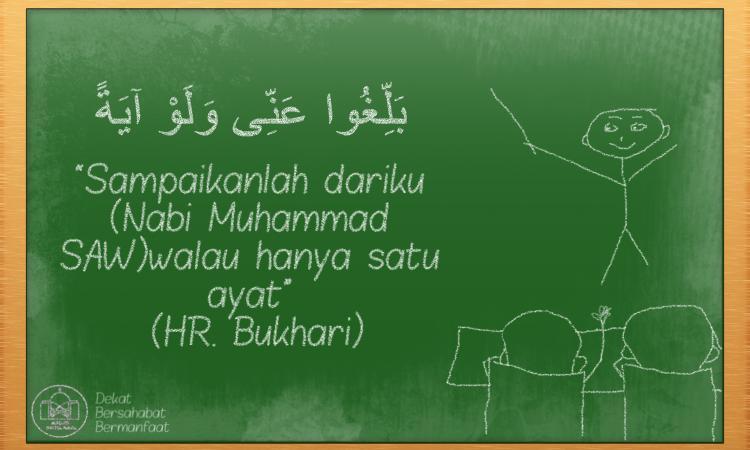 بَلِّغُوا عَنِّى وَلَوْ آيَةً
"Sampaikanlah dariku
(Nabi Muhammad
SAW)walau hanya satu
ayat"
(HR. Bukhari)
Dekat
Bersahabat
Bermanfaat